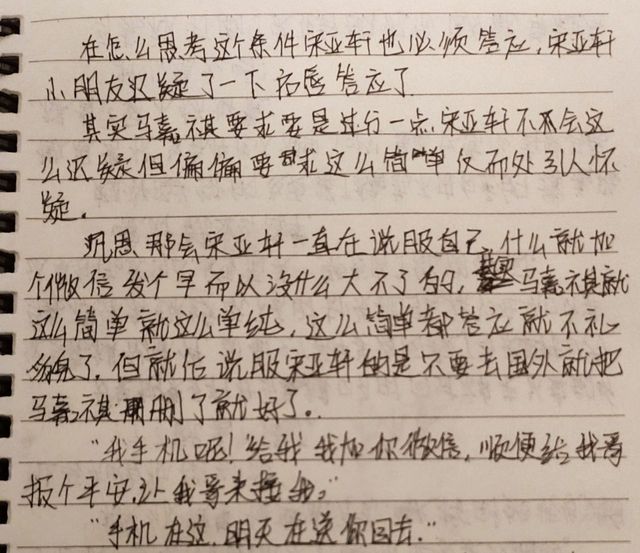 在怎么思考这个条件宋亚轩也必须答应,宋亚轩
小朋友迟疑了一下后答应了
其实马嘉祺要求要是过分一点,宋亚轩不会这
么迟疑但偏偏要求这么简单反而处引人怀
疑。
沉思那会宋亚轩一直在说服自己,什么就加
个微信发个早而以没什么大不了的,其实马嘉祺就
这么简单就这么单纯,这么简单都答应就不礼
貌了,但就估说服宋亚轩的是只要去国外就把
马嘉祺删了就好了。
“我手机呢!给我我加你微信,顺便给我哥
报个平安,让我哥来接我。”
“手机在这,明天在送你回去。”